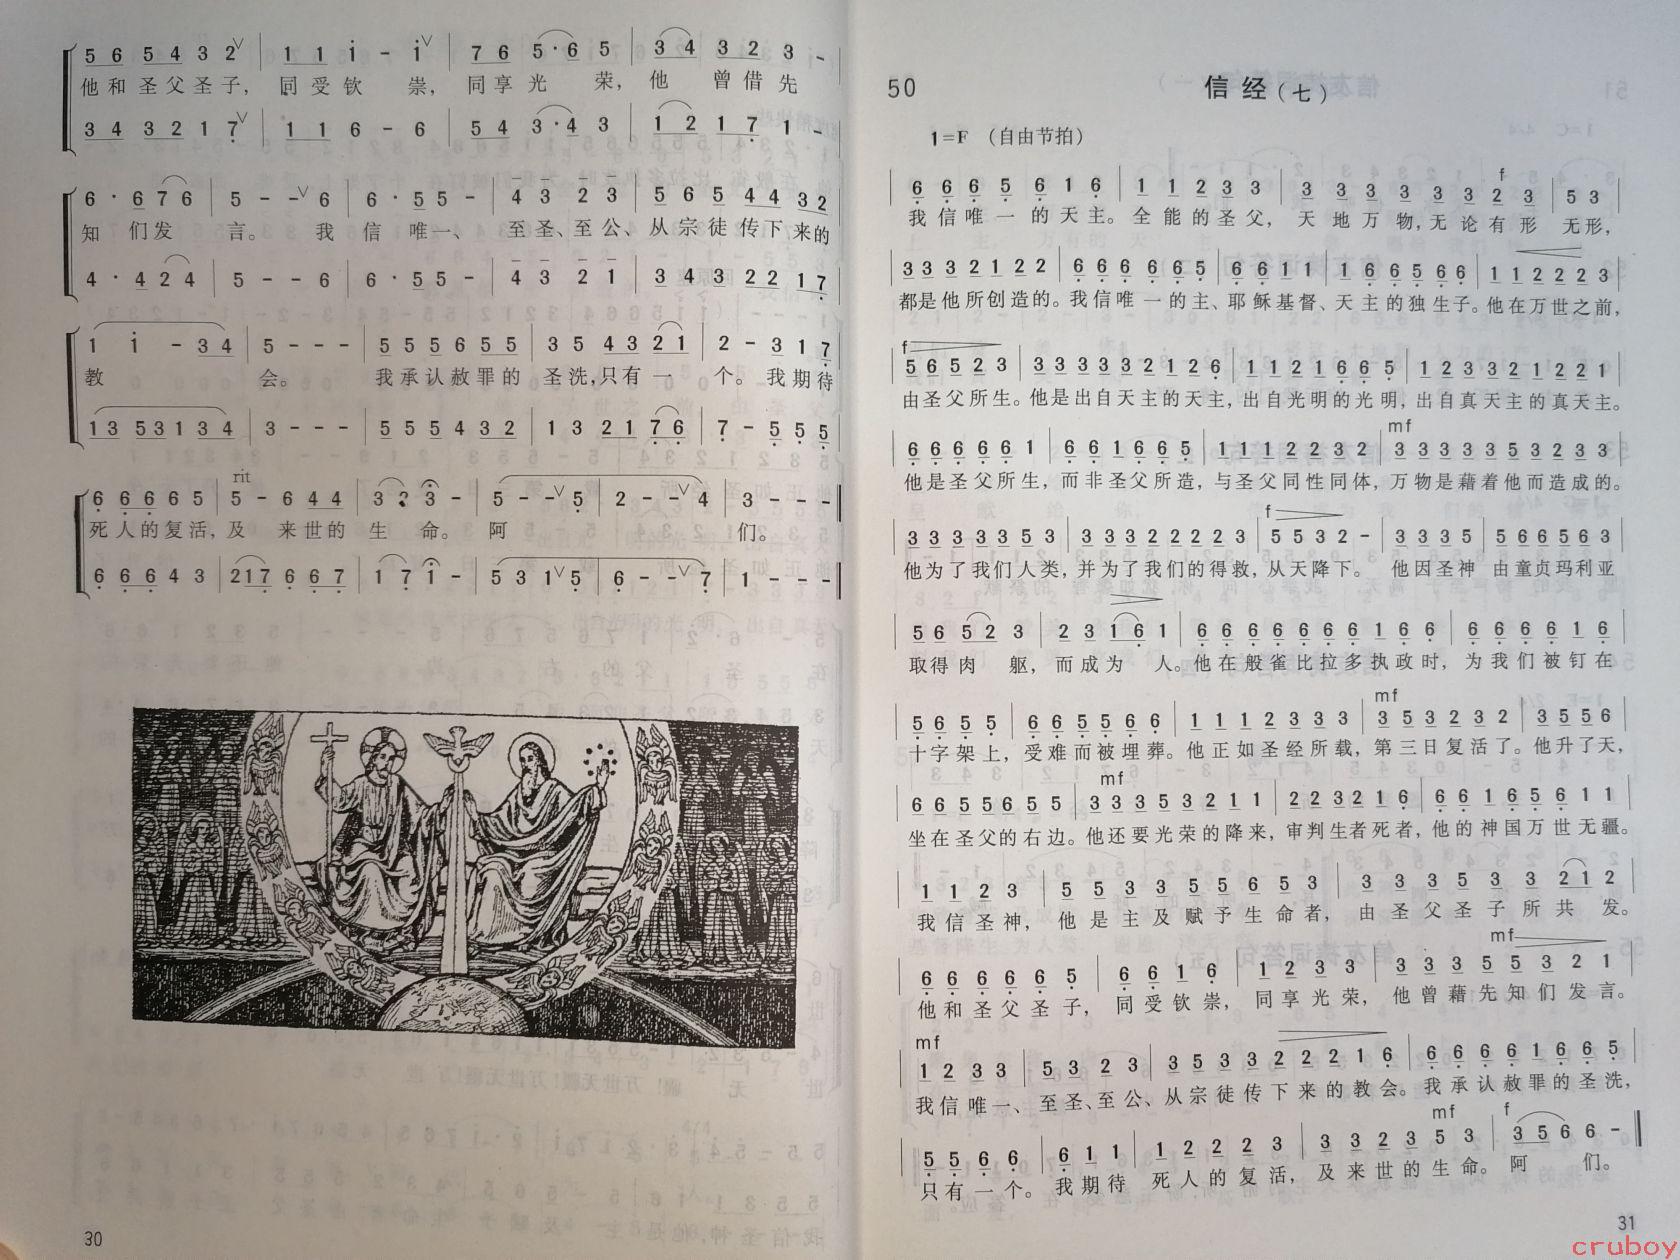 5 6 5 4 3 2 ∨ | 1 1 i - i ∨ | 7 6 5 · 6 5 | 3 4 3 2 3 -
他和圣父圣子, 同受钦 崇, 同享光 荣, 他 曾借先
3 4 3 2 1 7 ∨ | 1 1 6 - 6 | 5 4 3 · 4 3 | 1 2 1 7 1 -
6 · 6 7 6 | 5 - - ∨ 6 | 6 · 5 5 - | 4 3 2 3 | 5 6 5 4 4 3 2
知 们发 言。 我 信 唯一、 至圣、至公、从宗徒传下来的
4 · 4 2 4 | 5 - - 6 | 6 · 5 5 - | 4 3 2 1 | 3 4 3 2 2 1 7
1 i - 3 4 | 5 - - - | 5 5 5 6 5 5 | 3 5 4 3 2 1 | 2 - 3 1 7
教 会。 我承认赦罪的 圣洗,只有一 个。我期待
1 3 5 3 1 3 4 | 3 - - - | 5 5 5 4 3 2 | 1 3 2 1 7 6 | 7 - 5 5 5
rit
6 6 6 6 5 | 5 - 6 4 4 | 3 2 3 - | 5 - - ∨ 5 | 2 - - ∨ 4 | 3 - - -
死人的复活,及 来世的 生 命。 阿 们。
6 6 6 4 3 | 2 1 7 6 6 7 | 1 7 i - | 5 3 1 ∨ 5 | 6 - - ∨ 7 | 1 - - -
30
50 信经(七)
1=F (自由节拍)
f
6 6 6 5 6 1 6 | 1 1 2 3 3 | 3 3 3 3 3 3 2 3 | 5 3
我信唯一的天主。全能的圣父, 天地万物,无论有形 无形,
3 3 3 2 1 2 2 | 6 6 6 6 6 5 | 6 6 1 1 | 1 6 6 5 6 6 | 1 1 2 2 2 3
都是他所创造的。我信唯一的主、耶稣基督、天主的独生子。他在万世之前,
f
5 6 5 2 3 | 3 3 3 3 3 3 2 1 2 6 | 1 1 2 1 6 6 5 | 1 2 3 3 2 1 2 2 1
由圣父所生。他是出自天主的天主,出自光明的光明,出自真天主的真天主。
mf
6 6 6 6 6 1 | 6 6 1 6 6 5 | 1 1 1 2 2 3 2 | 3 3 3 3 3 5 3 2 3 3
他是圣父所生,而非圣父所造,与圣父同性同体,万物是藉着他而造成的。
f
3 3 3 3 3 5 3 | 3 3 3 2 2 2 2 3 | 5 5 3 2 - | 3 3 3 5 | 5 6 6 5 6 3
他为了我们人类,并为了我们的得救,从天降下。 他因圣神 由童贞玛利亚
5 6 5 2 3 | 2 3 1 6 1 | 6 6 6 6 6 6 6 1 6 6 | 6 6 6 6 1 6
取得肉 躯,而成为 人。他在般雀比拉多执政时,为我们被钉在
mf
5 6 5 5 | 6 6 5 5 6 6 | 1 1 1 2 3 3 3 | 3 5 3 2 3 2 | 3 5 5 6
十字架上,受难而被埋葬。他正如圣经所载,第三日复活了。他升了天,
mf
6 6 5 5 6 5 5 | 3 3 3 5 3 2 1 1 | 2 2 3 2 1 6 | 6 6 1 6 5 6 1 1
坐在圣父的右边。他还要光荣的降来,审判生者死者,他的神国万世无疆。
1 1 2 3 | 5 5 3 3 5 5 6 5 3 | 3 3 3 5 3 3 2 1 2
我信圣神, 他是主及赋予生命者, 由圣父圣子所共 发。
mf
6 6 6 6 6 5 | 6 6 1 6 | 1 2 3 3 | 3 3 3 5 5 3 2 1
他和圣父圣子, 同受钦崇, 同享光荣, 他曾藉先知们发言。
mf
1 2 3 3 | 5 3 2 3 | 3 5 3 3 2 2 2 1 6 | 6 6 6 6 1 6 6 5
我信唯一、至圣、至公、从宗徒传下来的教会。我承认赦罪的圣洗,
mf f
5 5 6 6 | 6 1 1 | 1 2 2 2 3 | 3 3 2 3 5 3 | 3 5 6 6 -
只有一个。我期待 死人的复活, 及来世的生命。阿 们。
31
cruboy